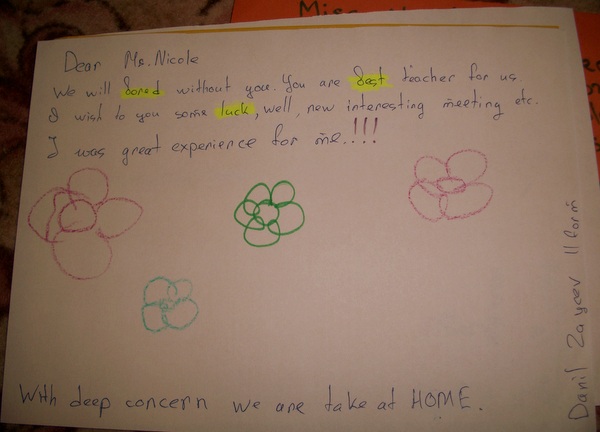 Dear Ms. Nicole
We will bored without you. You are best teacher for us.
I wish to you some luck, well, new interesting meeting etc.
I was great experience for me..!!!
With deep concern we are take at HOME.
Danil Zaycev 11 form